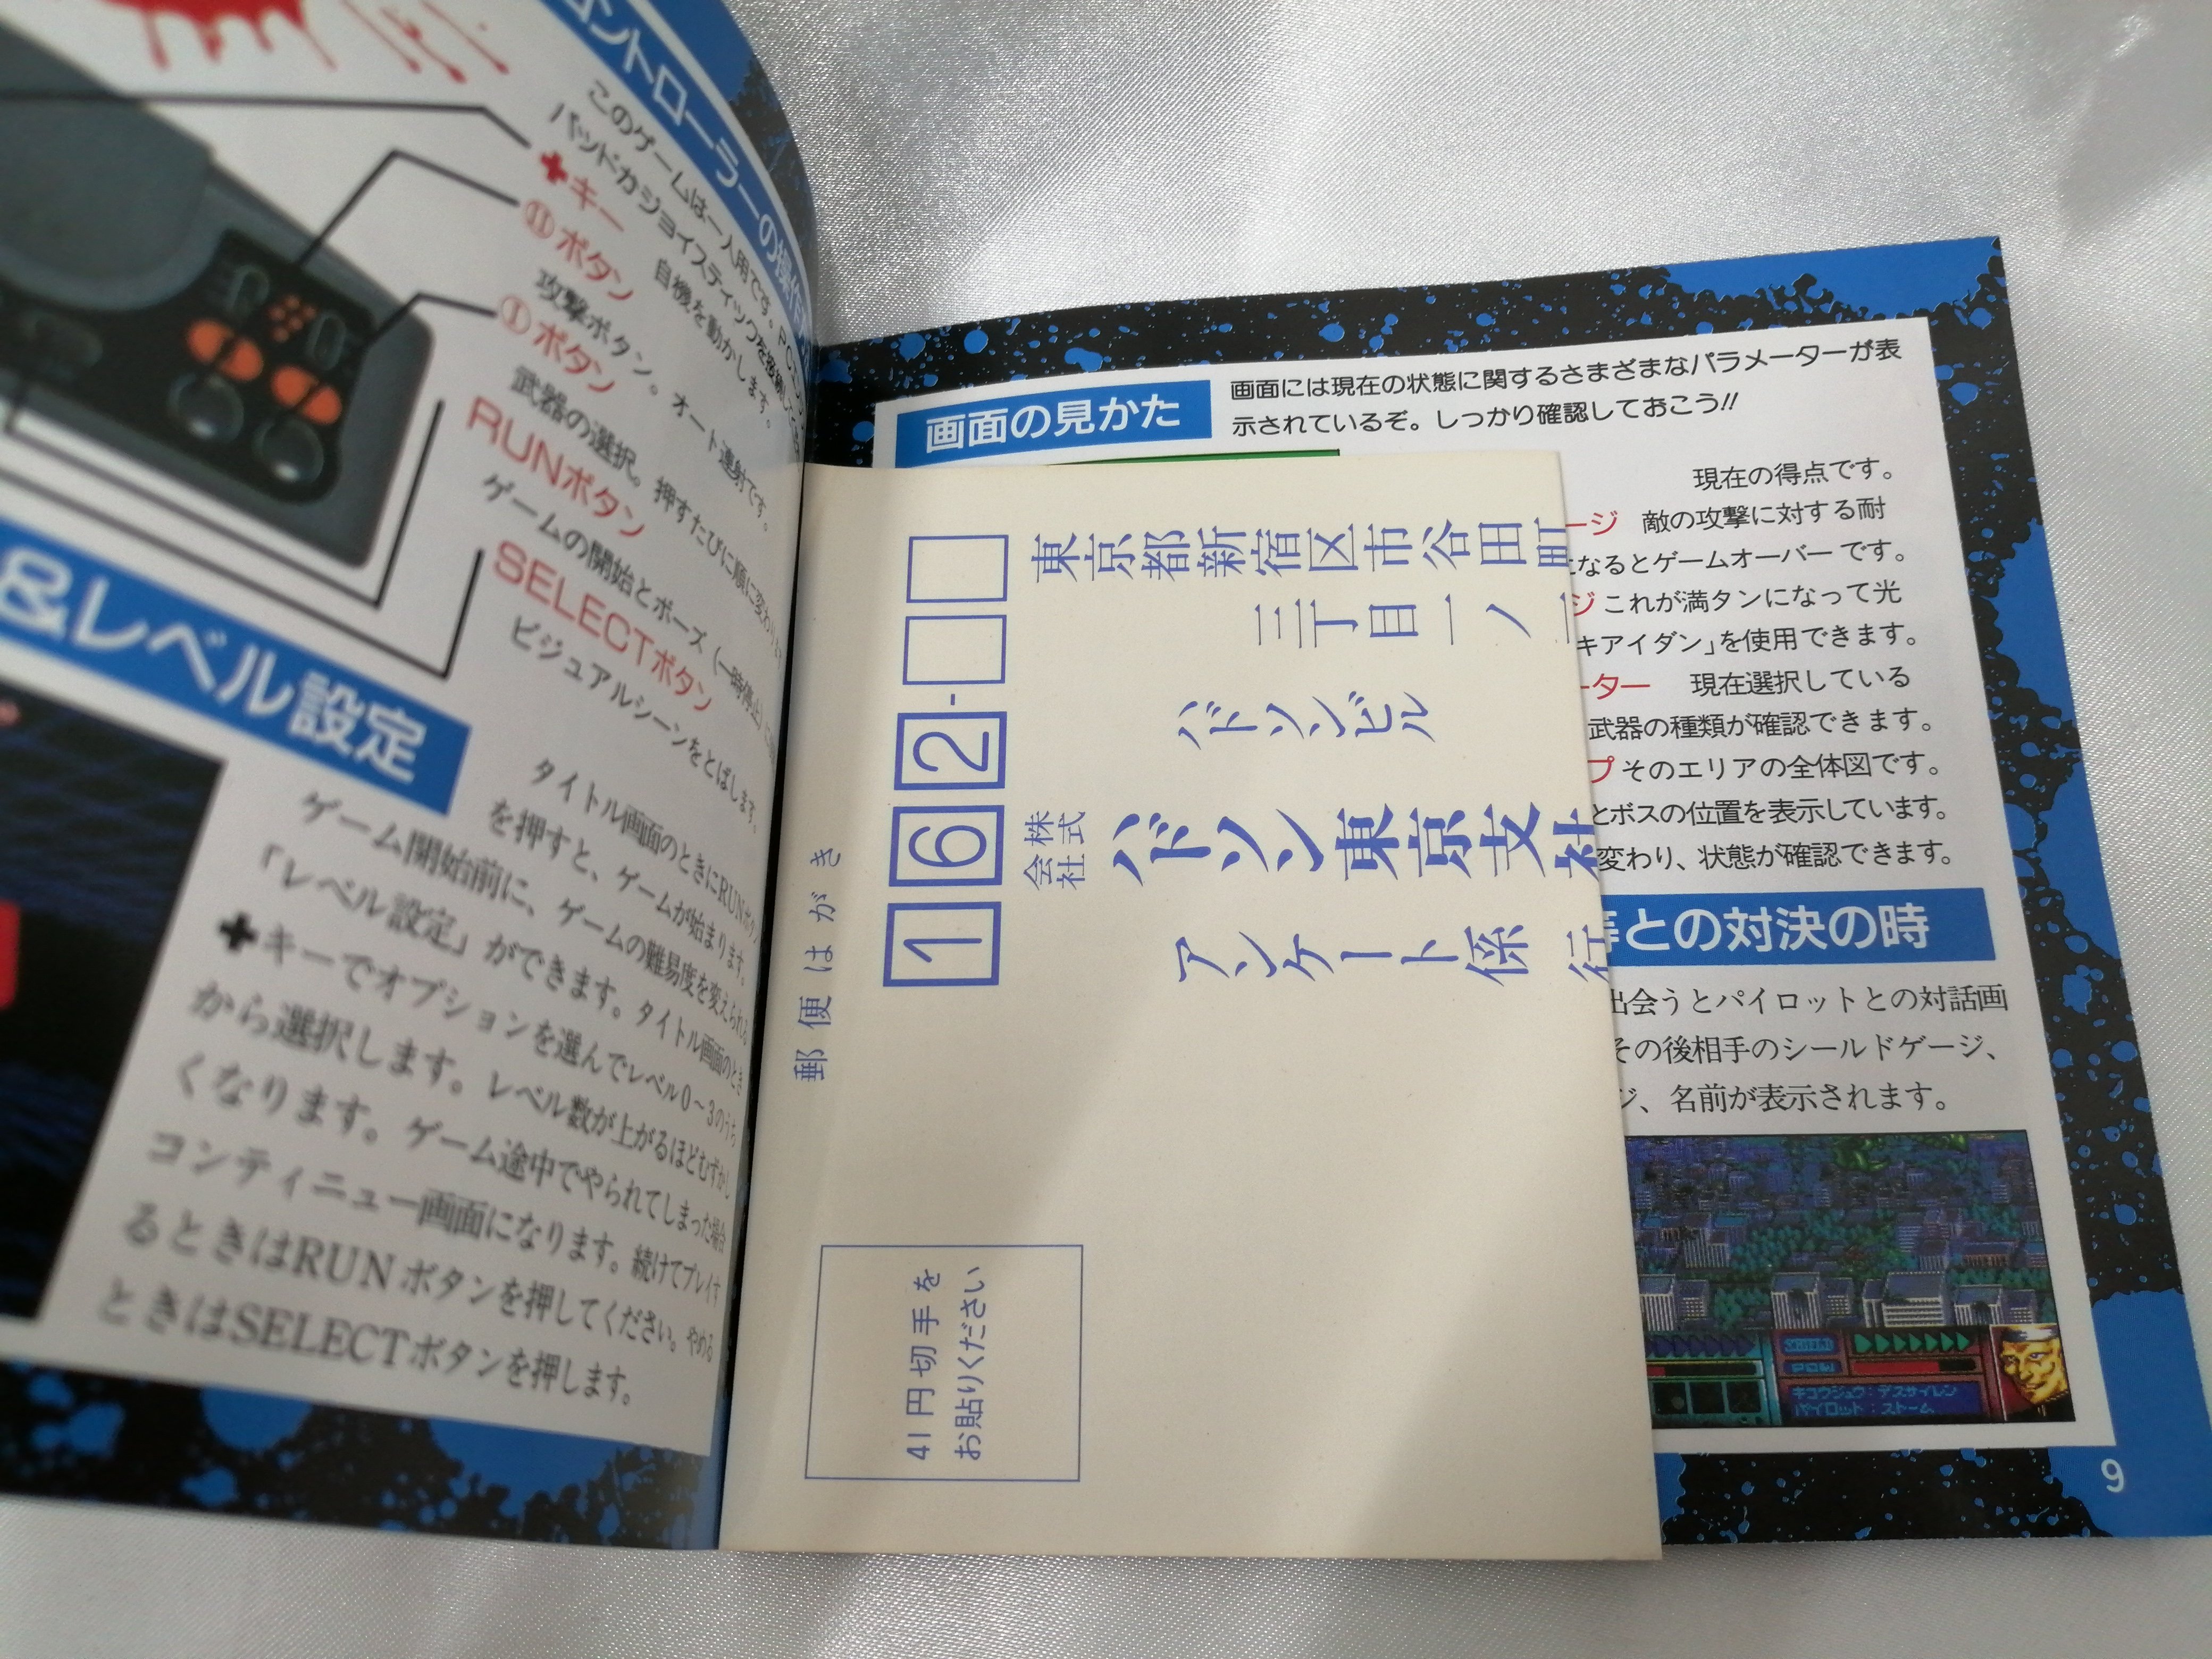 コントローラーの操作
このゲームは一人用です。PCエンジン
パッドかジョイスティックを接続して
✚キー
自機を動かします。
Ⅱボタン
攻撃ボタン。オート連射です。
Ⅰボタン
武器の選択。押すたびに順に変わり
RUNボタン
ゲームの開始とポーズ(一時停止)
SELECTボタン
ビジュアルシーンをとばします。
&レベル設定
タイトル画面のときにRUNボタン
を押すと、ゲームが始まります。
ゲーム開始前に、ゲームの難易度を変えられる
「レベル設定」ができます。タイトル画面のとき
✚キーでオプションを選んでレベル0～3のうち
から選択します。レベル数が上がるほどむずかし
くなります。ゲーム途中でやられてしまった場合
コンティニュー画面になります。続けてプレイす
るときはRUNボタンを押してください。やめる
ときはSELECTボタンを押します。
郵便はがき
162-
東京都新宿区市谷田町
三丁目一ノ一
ハドソンビル
株式会社
ハドソン東京支社
アンケート係 行
41円切手を
お貼りください
画面の見かた
画面には現在の状態に関するさまざまなパラメーターが表
示されているぞ。しっかり確認しておこう!!
現在の得点です。
ージ 敵の攻撃に対する耐
になるとゲームオーバーです。
ジ これが満タンになって光
キアイダン」を使用できます。
ーター 現在選択している
武器の種類が確認できます。
プ そのエリアの全体図です。
とボスの位置を表示しています。
変わり、状態が確認できます。
との対決の時
出会うとパイロットとの対話画
その後相手のシールドゲージ、
ジ、名前が表示されます。
キコウジュウ:デスサイレン
パイロット:ストーム
9